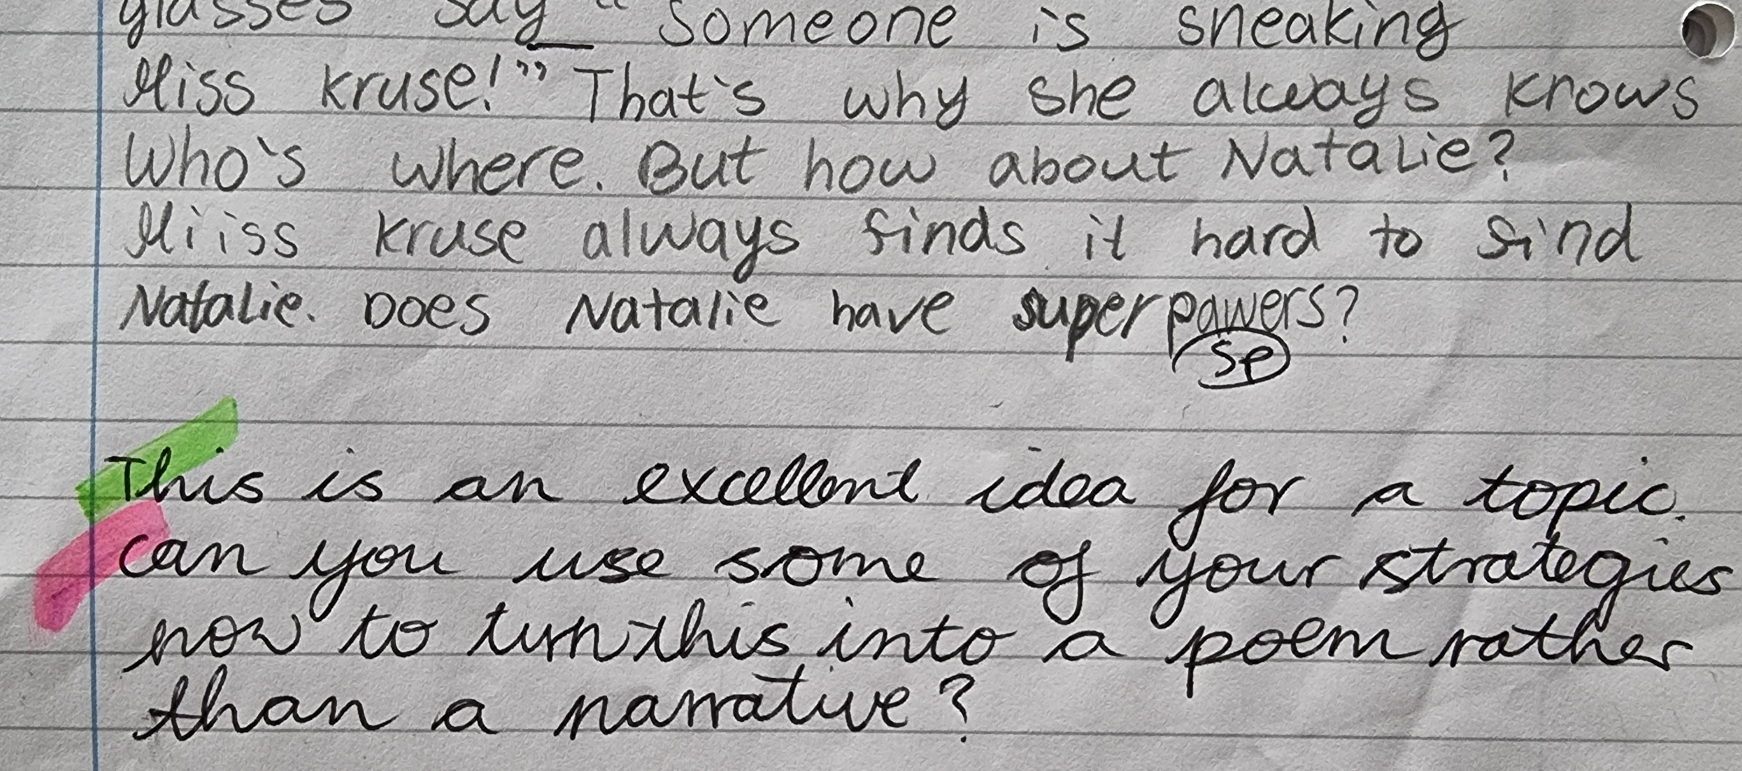 glasses say “ Someone is sneaking
Miss Kruse!” That's why she always knows
Who's where. But how about Natalie?
Miiss Kruse always finds it hard to find
Natalie. Does Natalie have superpawers?
sp
This is an excellent idea for a topic.
Can you use some of your strategies
now to turn this into a poem rather
than a narrative?